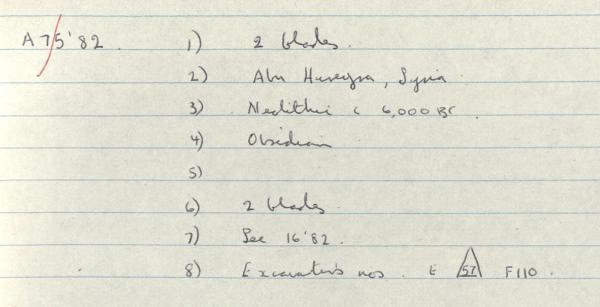 A75'82. 1) 2 blades.
2) Abu Hureyra, Syria
3) Neolithic c 6,000 BC.
4) Obsidian
5)
6) 2 blades.
7) See 16'82.
8) Excavator's nos. E 57 F110.